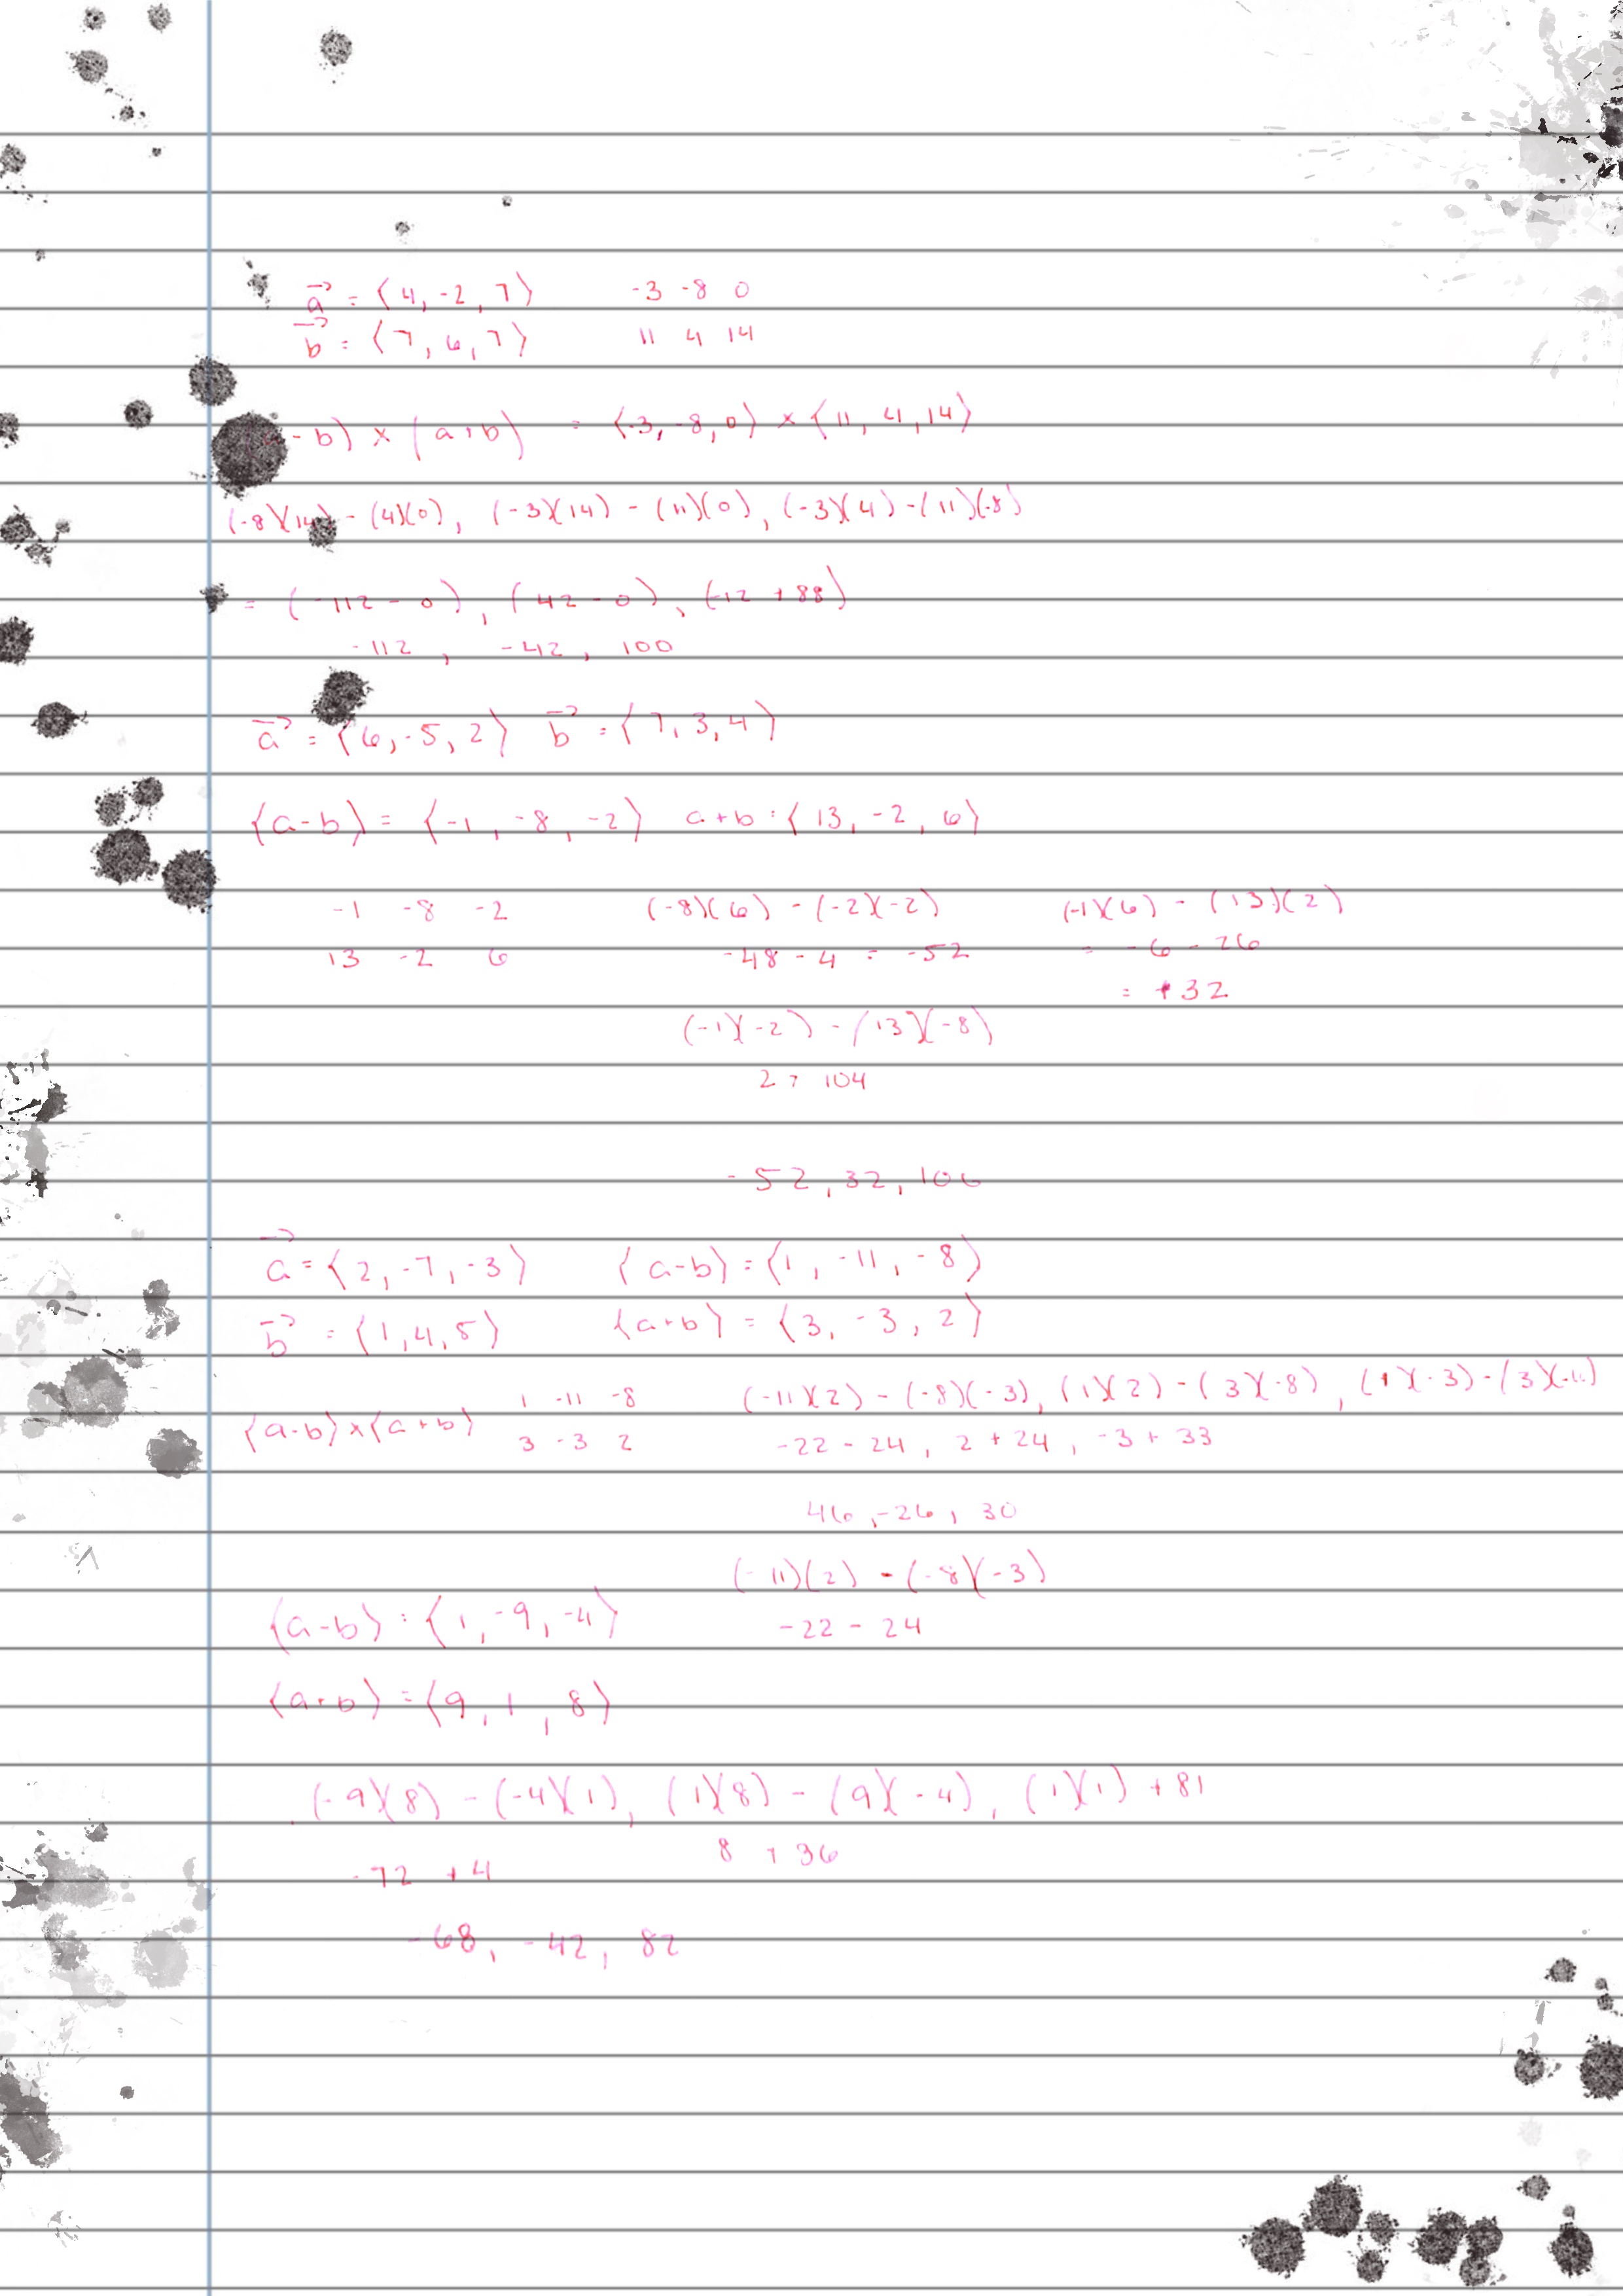 a⃗ = ⟨4, -2, 7⟩ -3 -8 0
b⃗ = ⟨7, 6, 7⟩ 11 4 14
- b) × (a+b) = ⟨-3, -8, 0⟩ × ⟨11, 4, 14⟩
(-8)(14) - (4)(0), (-3)(14) - (11)(0), (-3)(4) - (11)(-8)
= (-112 - 0), (42 - 0), (-12 + 88)
-112, -42, 100
a⃗ = ⟨6, -5, 2⟩ b⃗ = ⟨7, 3, 4⟩
⟨a-b⟩ = ⟨-1, -8, -2⟩ a+b = ⟨13, -2, 6⟩
-1 -8 -2 (-8)(6) - (-2)(-2) (-1)(6) - (13)(2)
13 -2 6 -48 - 4 = -52 = -6 - 26
= +32
(-1)(-2) - (13)(-8)
2 + 104
-52, 32, 106
a⃗ = ⟨2, -7, -3⟩ ⟨a-b⟩ = ⟨1, -11, -8⟩
b⃗ = ⟨1, 4, 5⟩ ⟨a+b⟩ = ⟨3, -3, 2⟩
1 -11 -8 (-11)(2) - (-8)(-3), (1)(2) - (3)(-8), (1)(-3) - (3)(-11)
⟨a-b⟩ × ⟨a+b⟩ 3 -3 2 -22 - 24, 2 + 24, -3 + 33
46, -26, 30
(-11)(2) - (-8)(-3)
⟨a-b⟩ = ⟨1, -9, -4⟩ -22 - 24
⟨a+b⟩ = ⟨9, 1, 8⟩
(-9)(8) - (-4)(1), (1)(8) - (9)(-4), (1)(1) + 81
8 + 36
-72 + 4
-68, -42, 82